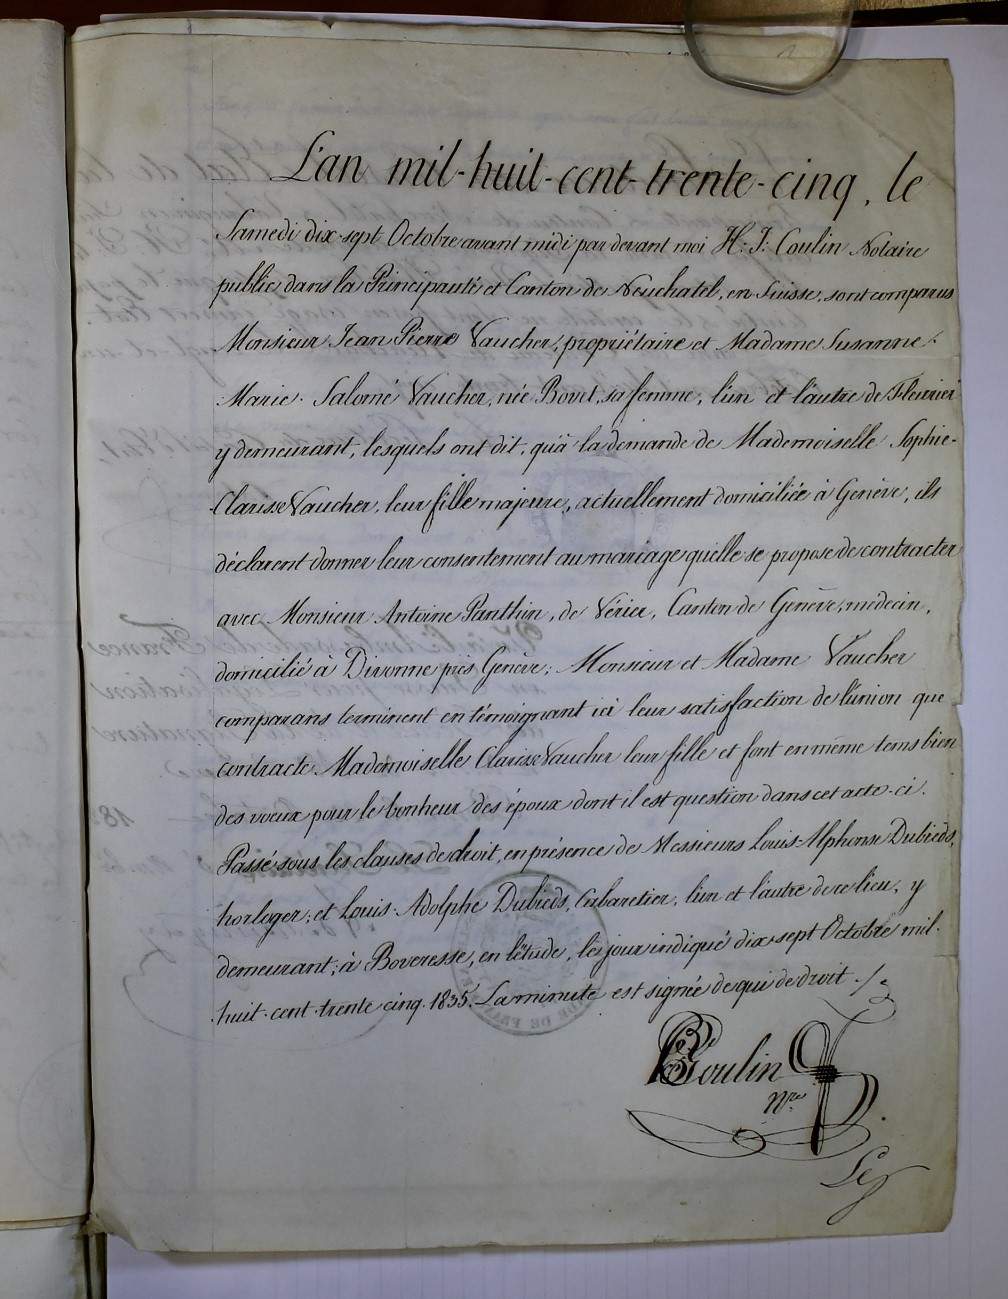 L'an mil-huit-cent-trente-cinq, le
Samedi dix-sept Octobre avant midi par devant moi H: J: Coulin Notaire
public dans la Principauté et Canton de Neuchatel, en Suisse, sont comparus
Monsieur Jean Pierre Vaucher, propriétaire et Madame Susanne-
Marie-Salomé Vaucher, née Bovet, sa femme, l'un et l'autre de Fleurier
y demeurant, lesquels ont dit, qu'à la demande de Mademoiselle Sophie-
Clarisse Vaucher, leur fille majeure, actuellement domiciliée à Genève, ils
déclarent donner leur consentement au mariage qu'elle se propose de contracter
avec Monsieur Antoine Panthin, de Vérier, Canton de Genève, médecin,
domicilié à Divonne près Genève; Monsieur et Madame Vaucher
comparans terminent en témoignant ici leur satisfaction de l'union que
contracte Mademoiselle Clarisse Vaucher leur fille et font en même tems bien
des voeux pour le bonheur des époux dont il est question dans cet acte-ci.
Passé sous les clauses de droit, en présence de Messieurs Louis-Alphonse Dubieds,
horloger, et Louis-Adolphe Dubieds, Cabaretier, l'un et l'autre de ce lieu, y
demeurant, à Boveresse, en l'étude, les jour indiqué dix sept Octobre mil-
huit-cent trente cinq. 1835. La minute est signée de qui de droit.
Coulin
Nre.